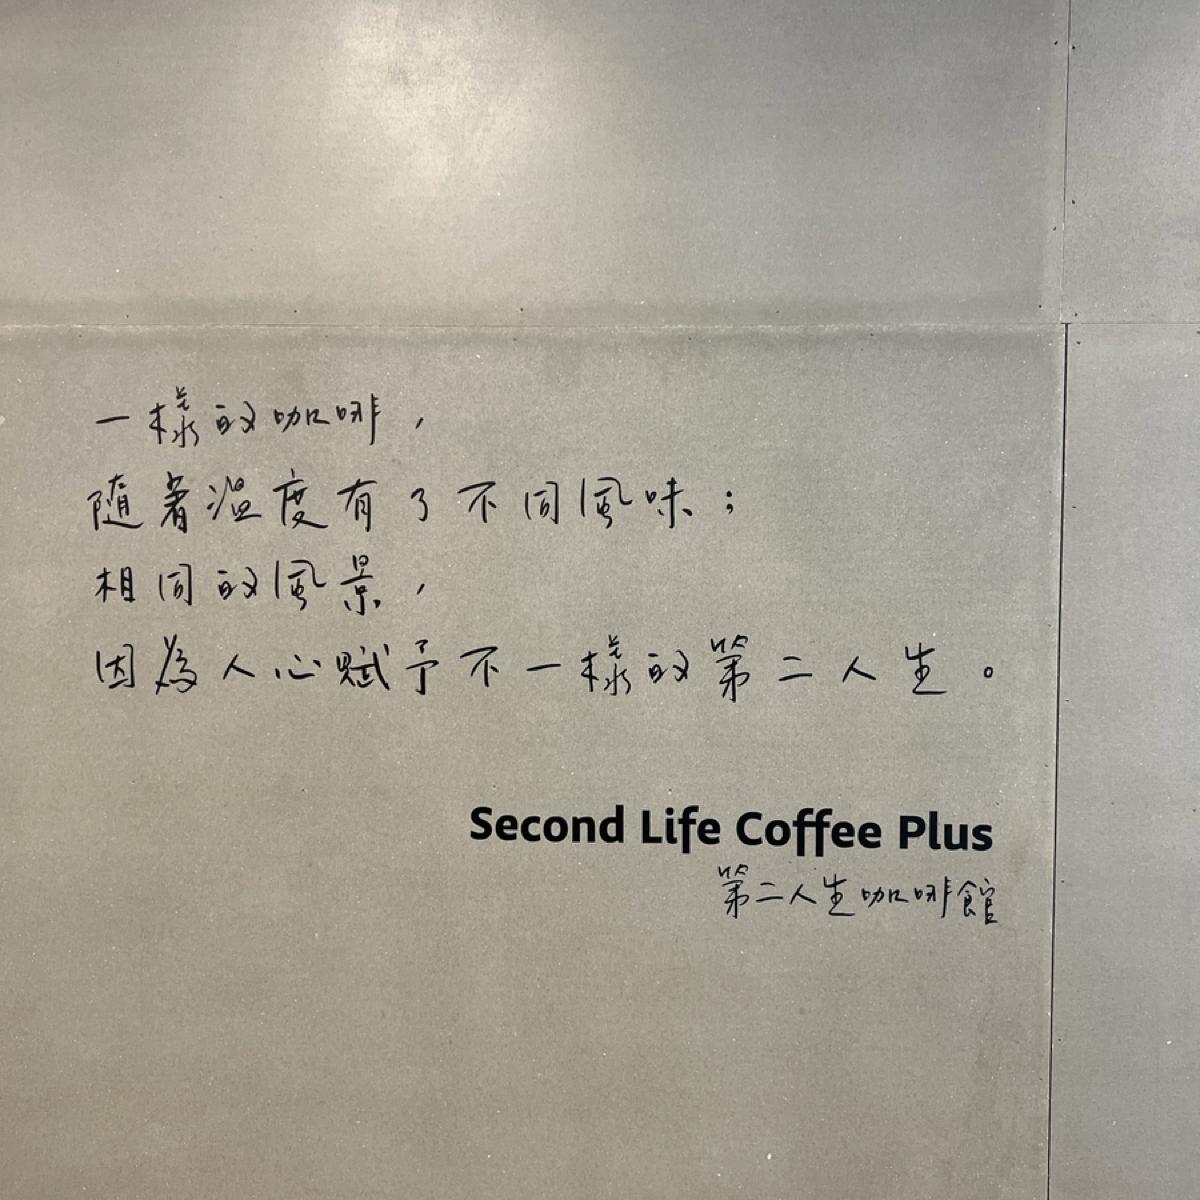 一樣的咖啡，
隨著溫度有了不同風味；
相同的風景，
因為人心賦予不一樣的第二人生。
Second Life Coffee Plus
第二人生咖啡館